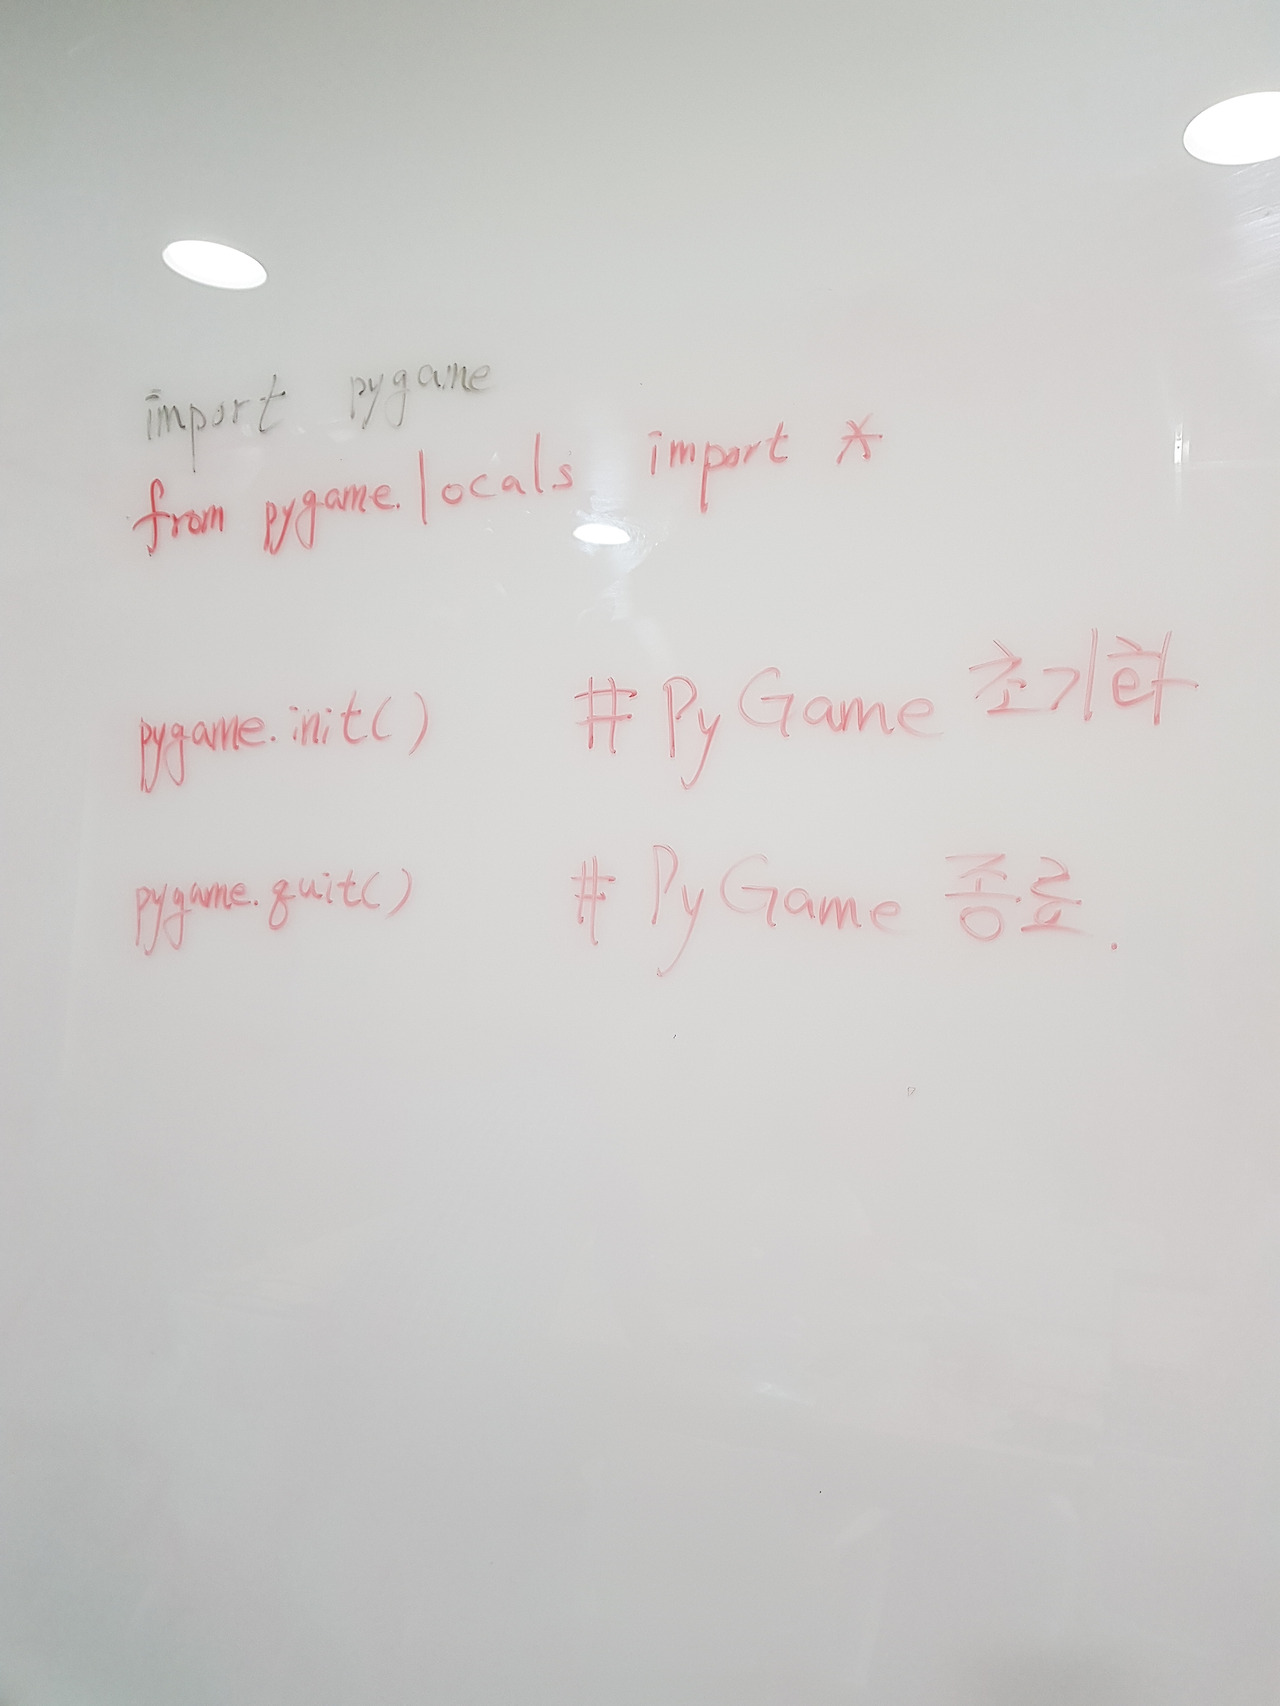 import pygame
from pygame.locals import *
pygame.init() # PyGame 초기화
pygame.quit() # PyGame 종료.